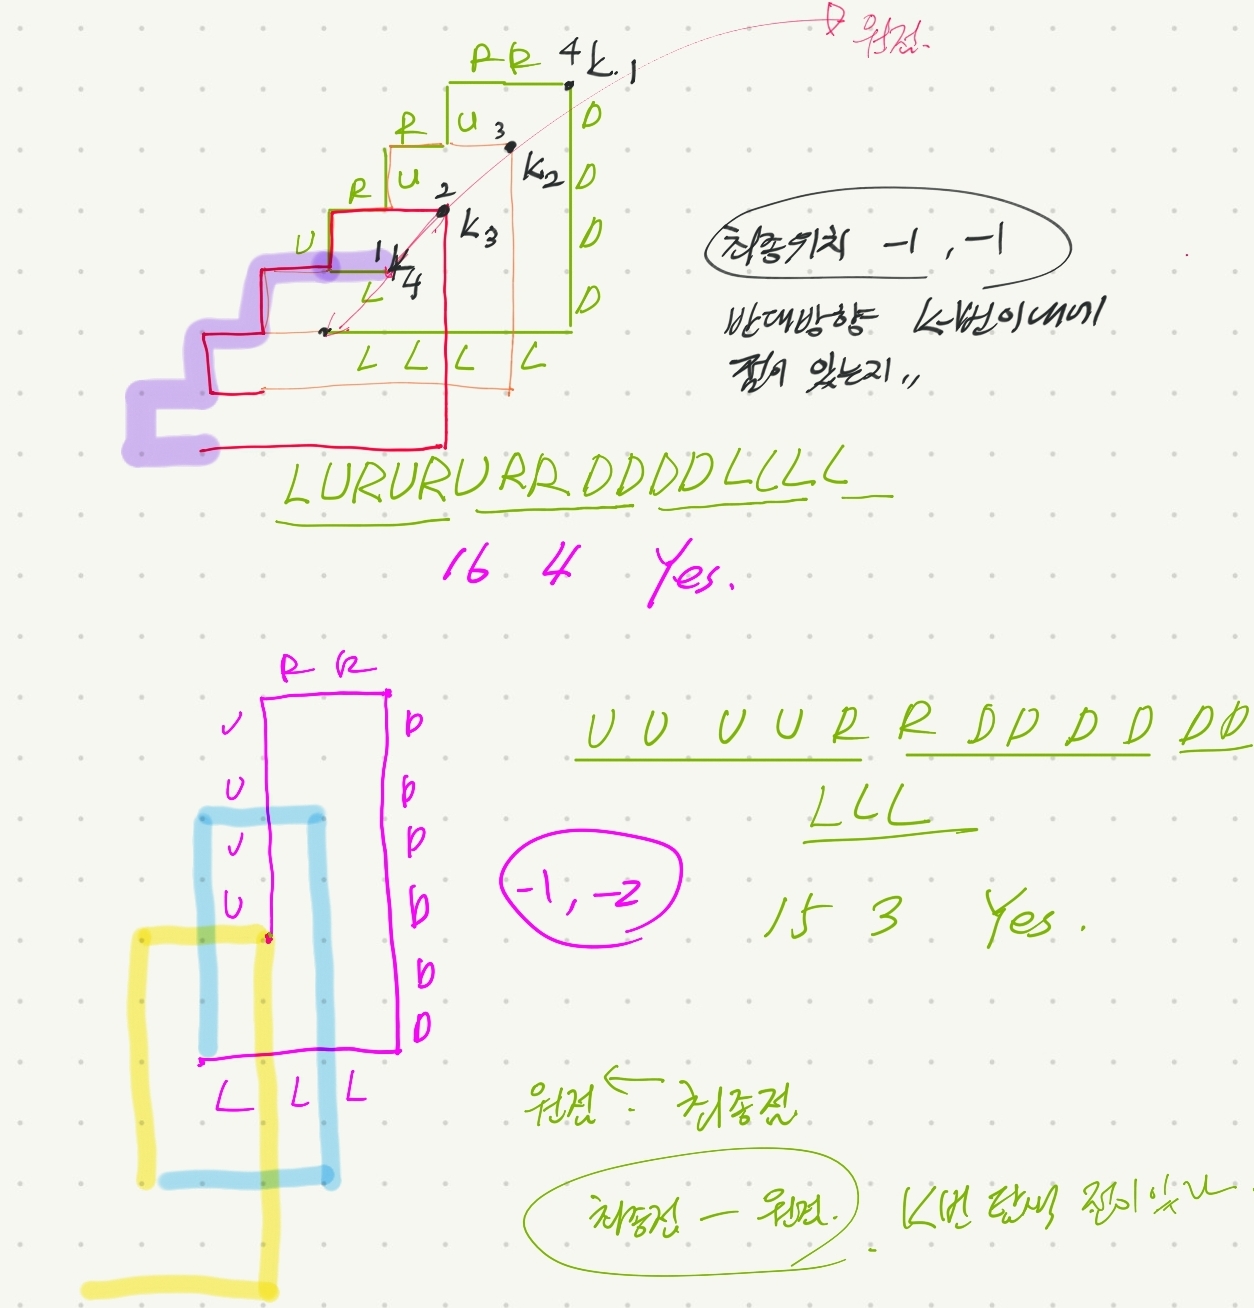 원점.
R R 4 K.1
D
R U 3 D
K2
R U 2 D
K3
U 1 K4 D
L
L L L L
최종위치 -1, -1
반대방향 K-1번이내에
점이 있는지,,
LURURURRDDDDLLLL
16 4 Yes.
R R
U D
U D
U D
U D
D
D
L L L
U U U U R R D D D D D D
L L L
-1, -2
15 3 Yes.
원점 ← 최종점
최종점 - 원점. K번 탐색 점이 있나